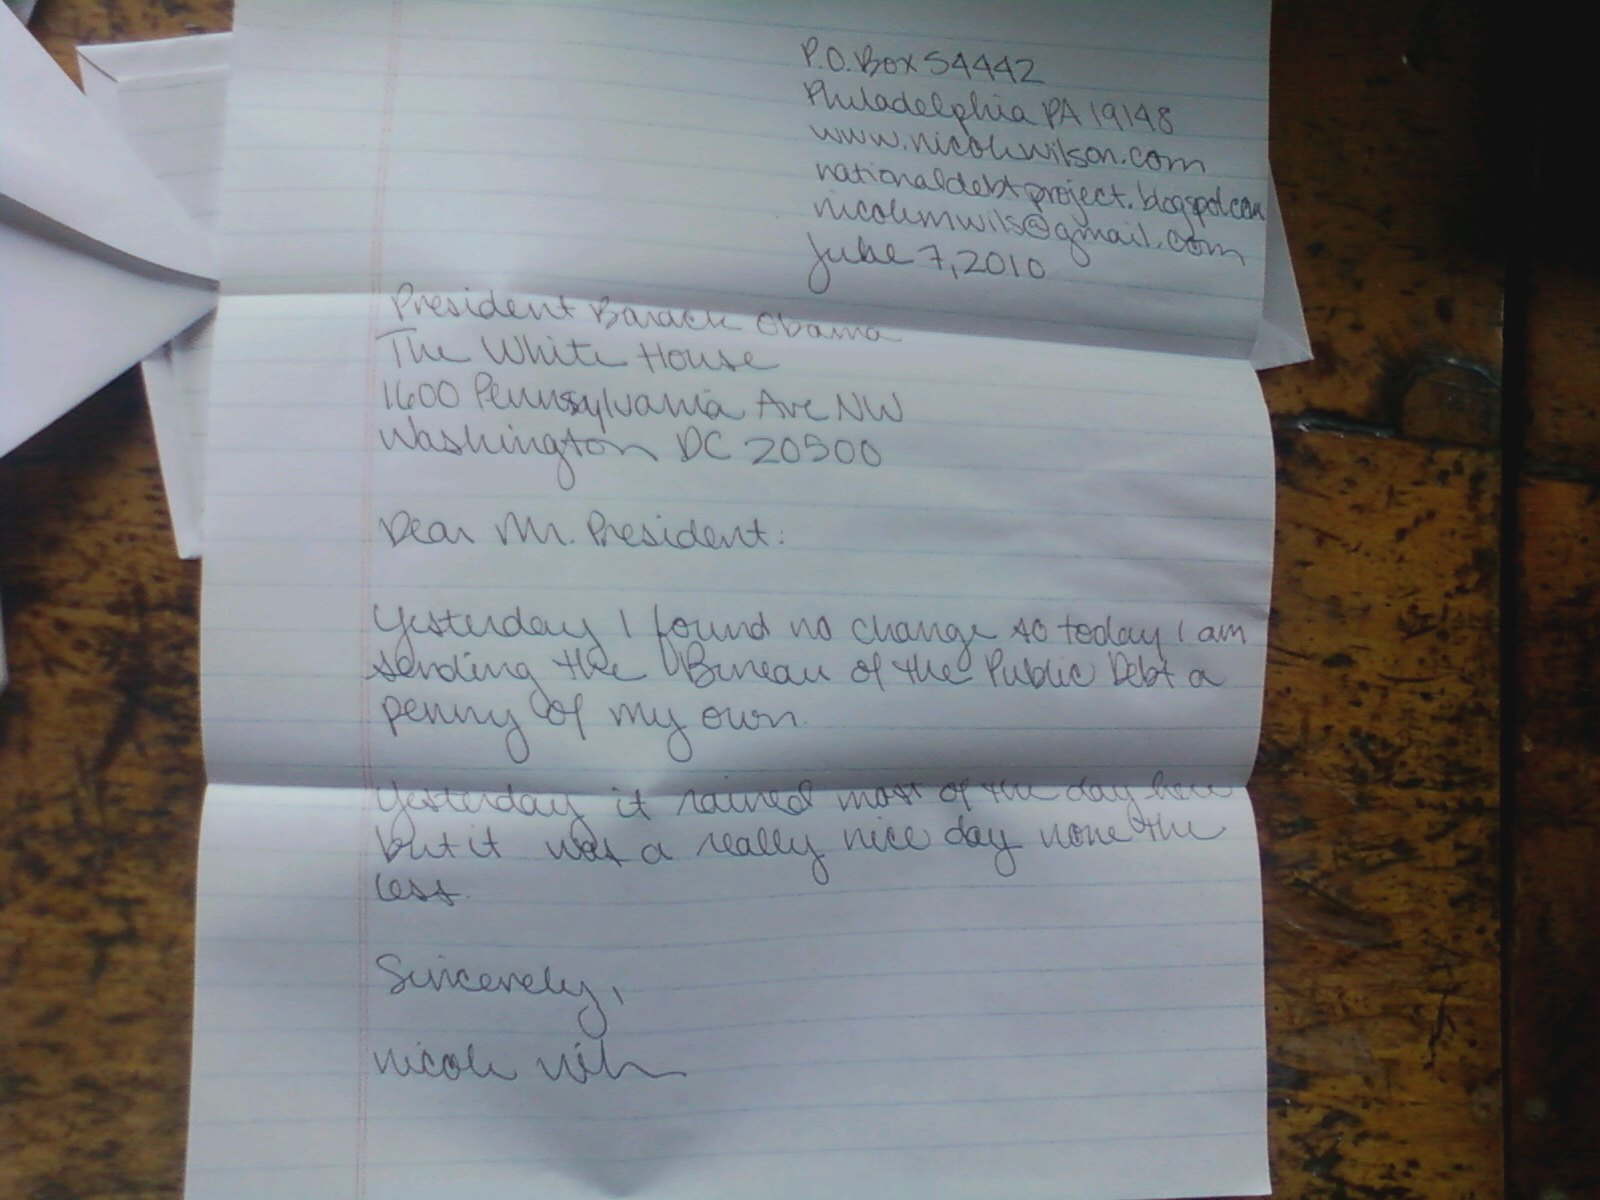 P.O. Box 54442
Philadelphia PA 19148
www.nicolewilson.com
nationaldebtproject.blogspot.com
nicolemwils@gmail.com
June 7, 2010
President Barack Obama
The White House
1600 Pennsylvania Ave NW
Washington DC 20500
Dear Mr. President:
Yesterday I found no change so today I am
sending the Bureau of the Public Debt a
penny of my own.
Yesterday it rained most of the day here
but it was a really nice day none the
less.
Sincerely,
Nicole Wilson